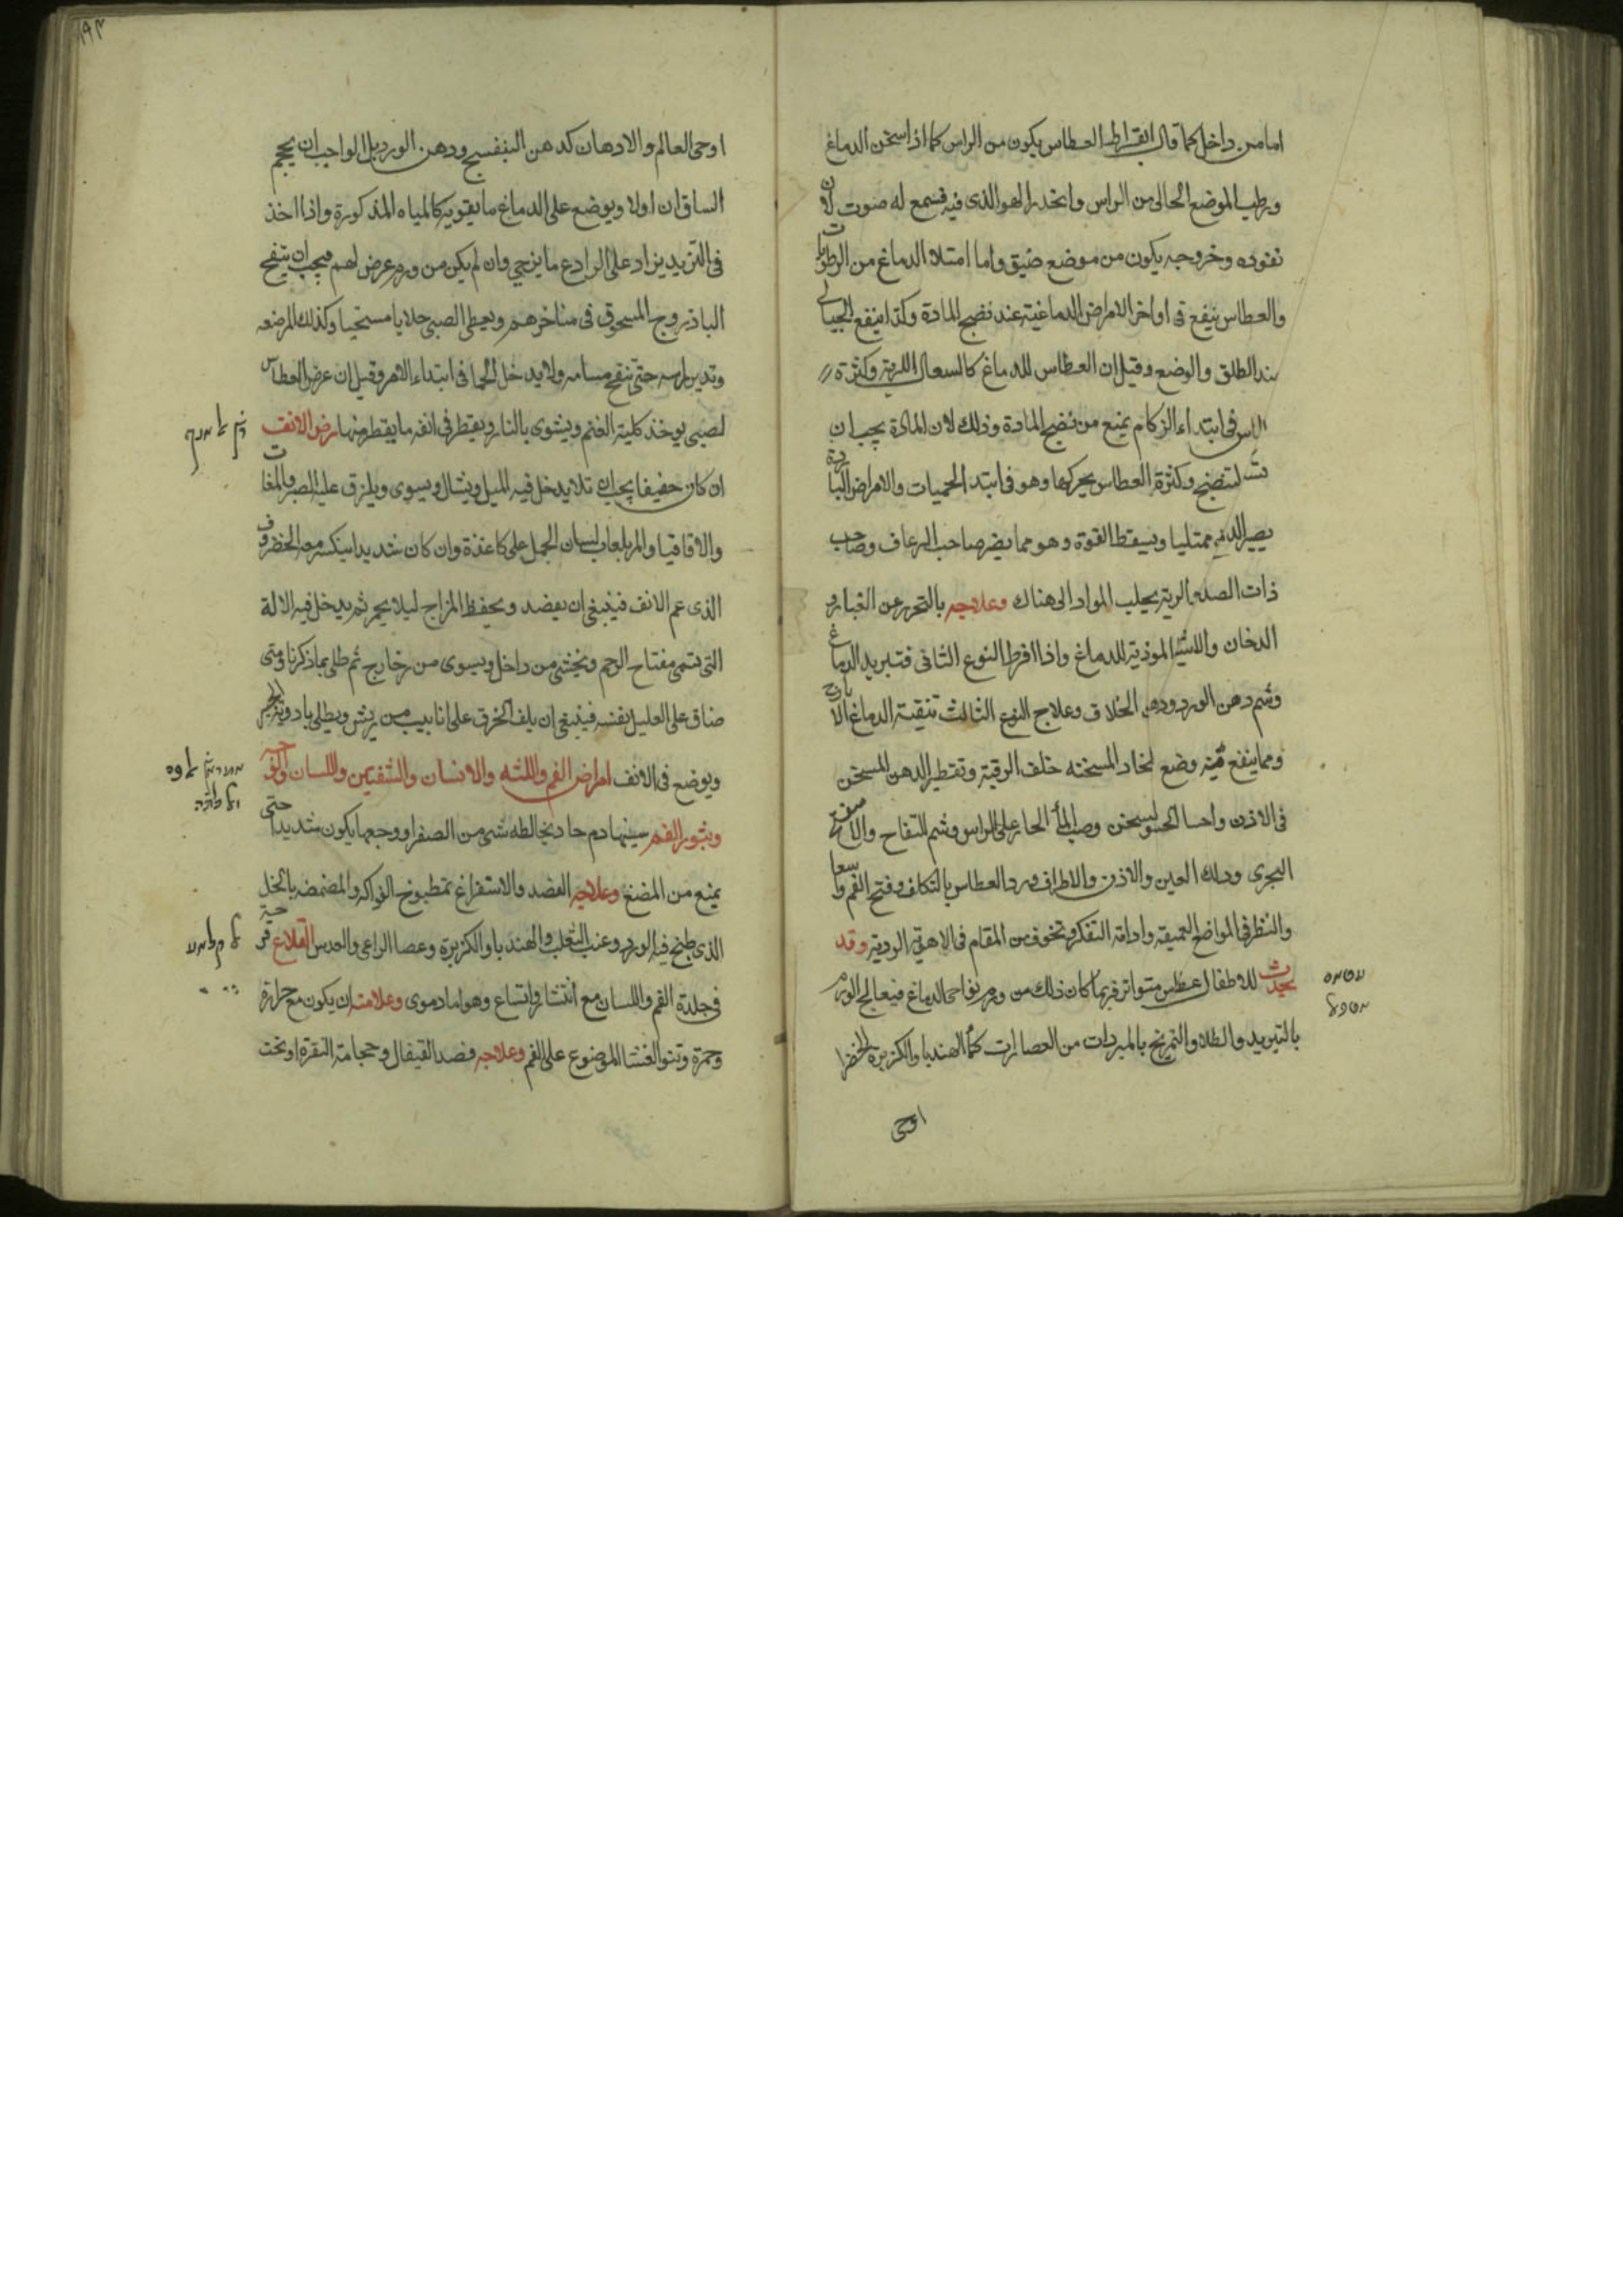 اما من داخل كما قال ابقراط العطاس يكون من الراس كما اذا سخن الدماغ
ويرطب الموضع الخالى من الراس وانحدر الهوا الذى فيه فسمع له صوت لان
نفوذه وخروجه يكون من موضع ضيق واما امتلاء الدماغ من الرطوبات
والعطاس ينفع فى اواخر الامراض الدماغية عند نضج المادة وكذا ينفع الحبالى
عند الطلق والوضع وقيل ان العطاس للدماغ كالسعال للرية وكثرة
فى ابتداء الزكام يمنع من نضج المادة وذلك لان المادة يجب ان
لتنضج وكثرة العطاس يحركها وهو فى ابتدا الحميات والامراض الباردة
يصير الدم ممتليا ويسقط القوة وهو مما يضر صاحب الرعاف وصاحب
ذات الصدر الرية يجلب المواد الى هناك وعلاجه بالتحرز عن الغبار و
الدخان والاشيا الموذية للدماغ واذا افرط النوع الثانى فتبريد الدماغ
وشم دهن الورد ودهن الخلاف وعلاج النوع الثالث تنقية الدماغ الايارج
ومما ينفع منه وضع لخاد المسخنه خلف الرقبة وتقطير الدهن المسخن
فى الاذن واحسا الحسو لسخن وصب الماء الحار على الراس وشم التفاح والاسفنج
البحرى ودلك العين والاذن والاطراف ورد العطاس بالتكلف وفتح الفم واسعا
والنظر فى المواضع العميقة وادامة التفكر وتخوف من المقام فى الاهوية الردية وقد
يحدث للاطفال عطاس متواتر فربما كان ذلك من ورم نواحى الدماغ فيعالج الورم
بالتبريد والطلاء والتمريخ بالمبردات من العصارات كماء الهندبا والكزبرة الخضرا
اوحى
١٩٣
اوحى العالم والادهان كدهن البنفسج ودهن الورد بل الواجب ان يحجم
الساقان اولا ويوضع على الدماغ ما يقويه كالمياه المذكورة واذا اخذ
فى التزيد يزاد على الرادع ما يرخى وان لم يكن من ورم عرض لهم فيجب ان ينفخ
الباذروج المسحوق فى مناخرهم ويعطى الصبى جلابا مسخنا وكذلك المرضعه
راسه حتى تنفتح مسامه ولا يدخل الحمام فى ابتداء الامر وقيل ان عرض العطاس
لصبى يوخذ كلية الغنم ويشوى بالنار ويقطر فى انفه ما يقطر منها رض الانف
ان كان خفيفا يجب ان يدخل فيه الميل ويشال ويسوى ويلزق عليه الصبر والمغاث
والاقاقيا والمر بلعاب لسان الحمل على كاغذة وان كان شديدا ينكسر معه الغضروف
الذى عم الانف فينبغى ان يفصد ويحفظ المزاج ليلا يحم ثم يدخل فيه الالة
التى تسمى مفتاح الرحم ويحشى من داخل ويسوى من خارج ثم طلى بما ذكرنا ومتى
ضاق على العليل نفسه فينبغى ان يلف الخرق على انابيب من ريش ويطلى بادوية الجبر
ويوضع فى الانف امراض الفم واللثه والاسنان والشفتين واللسان والحنجرة
وبثور الفم سببها دم حاد يخالطه شى من الصفرا ووجعها يكون شديدا حتى
يمنع من المضغ وعلاجه الفصد والاستفراغ بمطبوخ الفواكه والمضمضه بالخل
الذى طبخ فيه الورد وعنب الثعلب والهندبا والكزبرة وعصا الراعى والعدس القلاع قرحة
فى جلدة الفم واللسان مع انتشار واتساع وهو اما دموى وعلامته ان يكون مع حرارة
وحمرة ونتو الغشا الموضوع على الفم وعلاجه فصد القيفال وحجامة النقرة او تحت